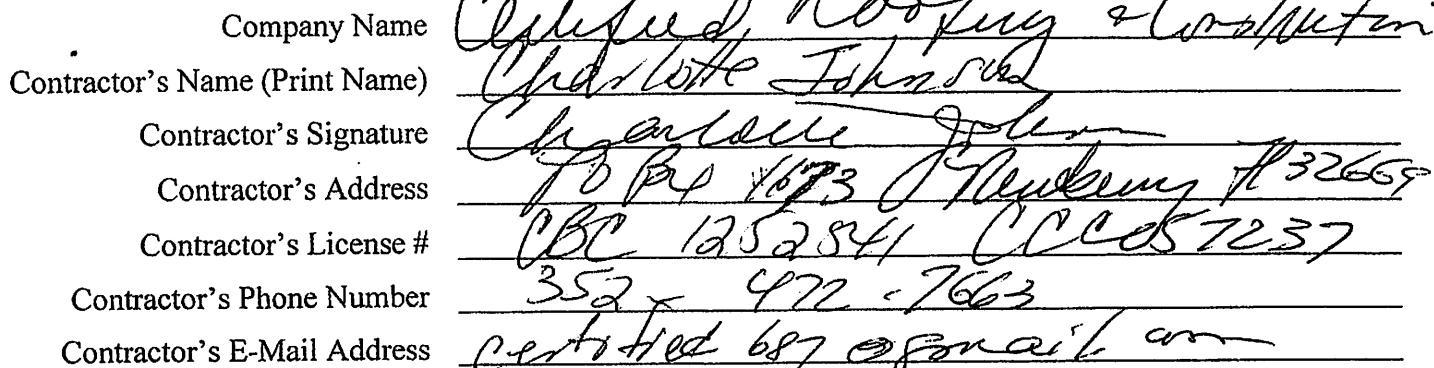 Company Name Certified Roofing & Construction
Contractor's Name (Print Name) Charlotte Johnson
Contractor's Signature Charlotte Johnson
Contractor's Address PO Box 1673 Newberry Fl 32669
Contractor's License # CBC 1252841 CCC057237
Contractor's Phone Number 352-472-7663
Contractor's E-Mail Address certified687@gmail.com